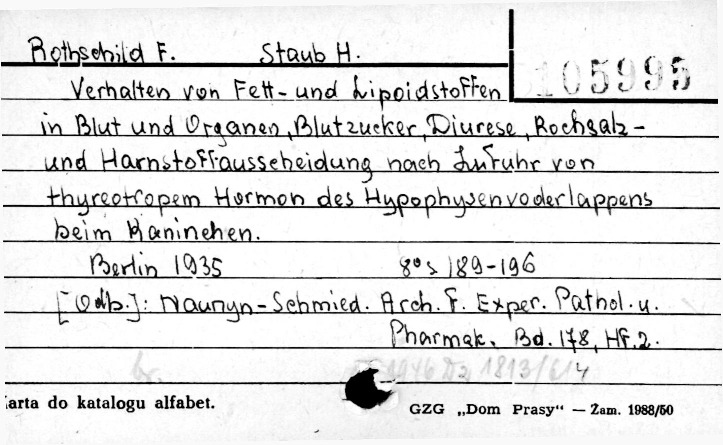 Rothschild F. Staub H.
105995
Verhalten von Fett- und Lipoidstoffen
in Blut und Organen, Blutzucker, Diurese, Kochsalz-
und Harnstoffausscheidung nach Zufuhr von
thyreotropem Hormon des Hypophysenvoderlappens
beim Kaninchen.
Berlin 1935 8° s 189-196
[Odb.]: Naunyn-Schmied. Arch. f. Exper. Pathol. u.
Pharmak. Bd. 178, Hf. 2.
br. 1946 Dz 1813/614
arta do katalogu alfabet.
GZG „Dom Prasy" — Zam. 1988/50